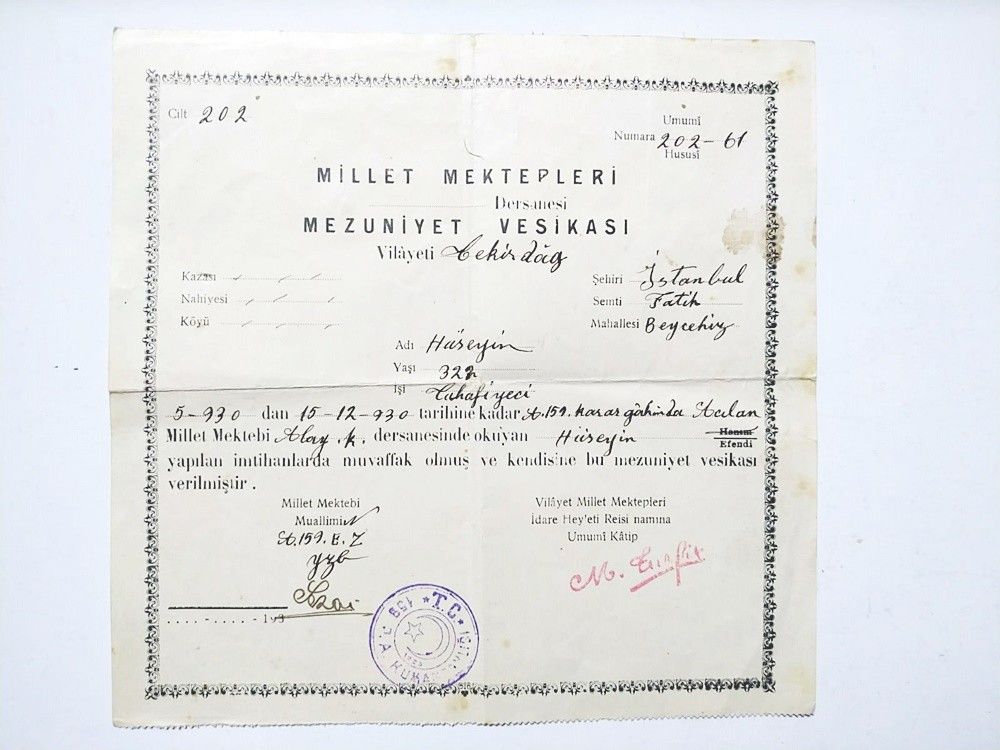 Cilt 202
Umumî
Numara 202-61
Hususî
MİLLET MEKTEPLERİ
Dersanesi
MEZUNİYET VESİKASI
Vilâyeti Tekirdağ
Kazası
Şehiri İstanbul
Nahiyesi
Semti Fatih
Köyü
Mahallesi Beyceğiz
Adı Hüseyin
Yaşı 322
İşi Tuhafiyeci
5-930 dan 15-12-930 tarihine kadar A.159. karargâhında Açılan
Millet Mektebi Alay .k. dersanesinde okuyan Hüseyin Hanım Efendi
yapılan imtihanlarda muvaffak olmuş ve kendisine bu mezuniyet vesikası
verilmiştir.
Millet Mektebi
Muallimi
A.159.
Vilâyet Millet Mektepleri
İdare Hey'eti Reisi namına
Umumî Kâtip
M.
193
T.C. 159